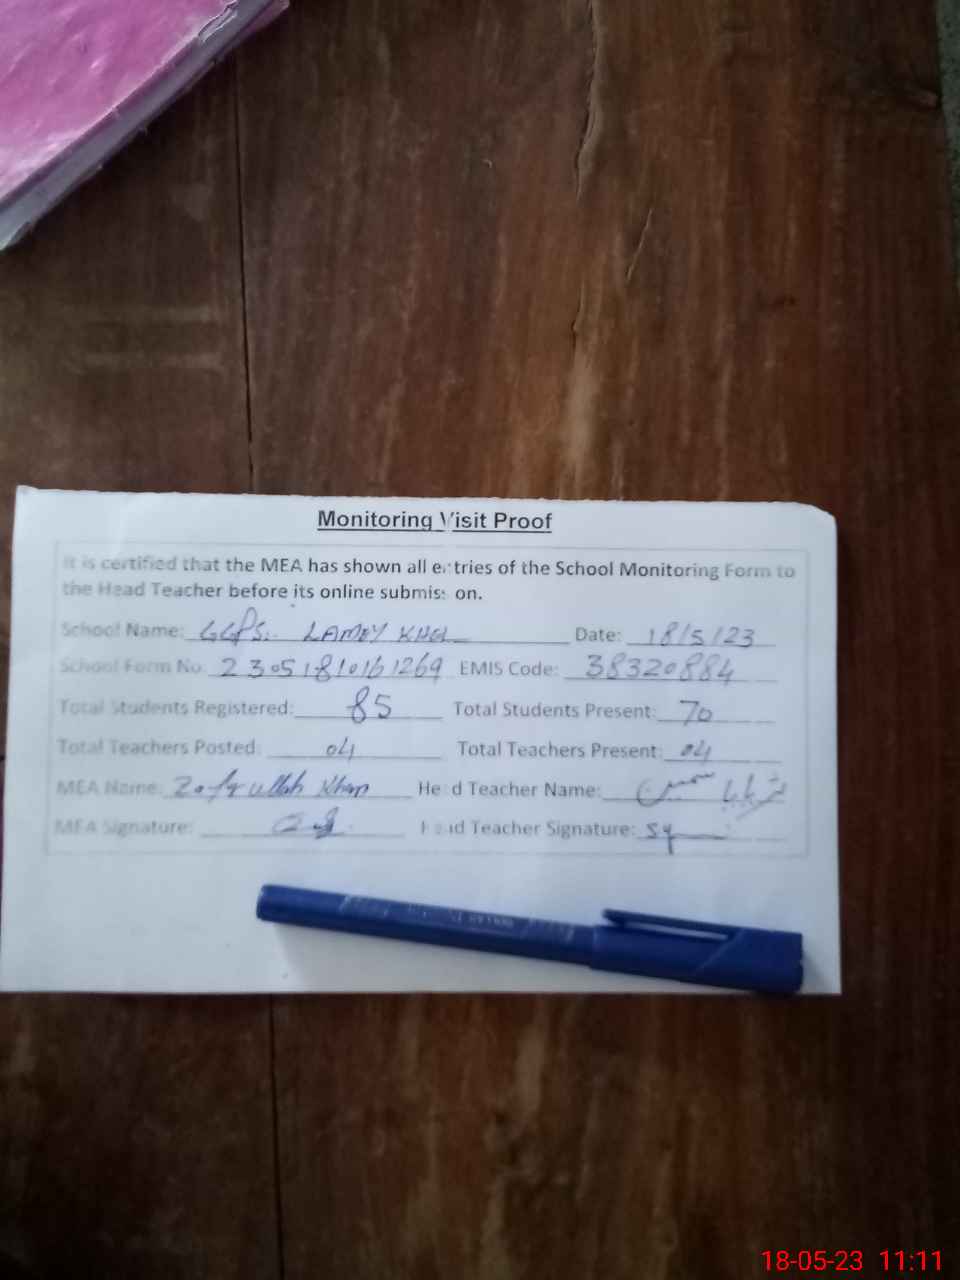 Monitoring Visit Proof
It is certified that the MEA has shown all entries of the School Monitoring Form to
the Head Teacher before its online submission.
School Name: GGPS. LAMEY KHEL Date: 18/5/23
School Form No. 23051810161269 EMIS Code: 38320884
Total Students Registered: 85 Total Students Present: 70
Total Teachers Posted: 04 Total Teachers Present: 04
MEA Name: Zafrullah Khan Head Teacher Name:
MEA Signature: Head Teacher Signature:
18-05-23 11:11